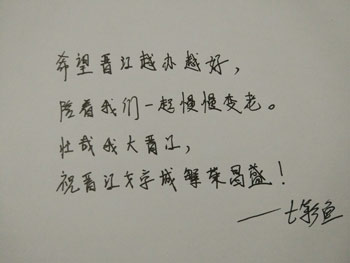 希望晋江越办越好，
陪着我们一起慢慢变老。
壮哉我大晋江，
祝晋江文学城繁荣昌盛！
——七彩鱼